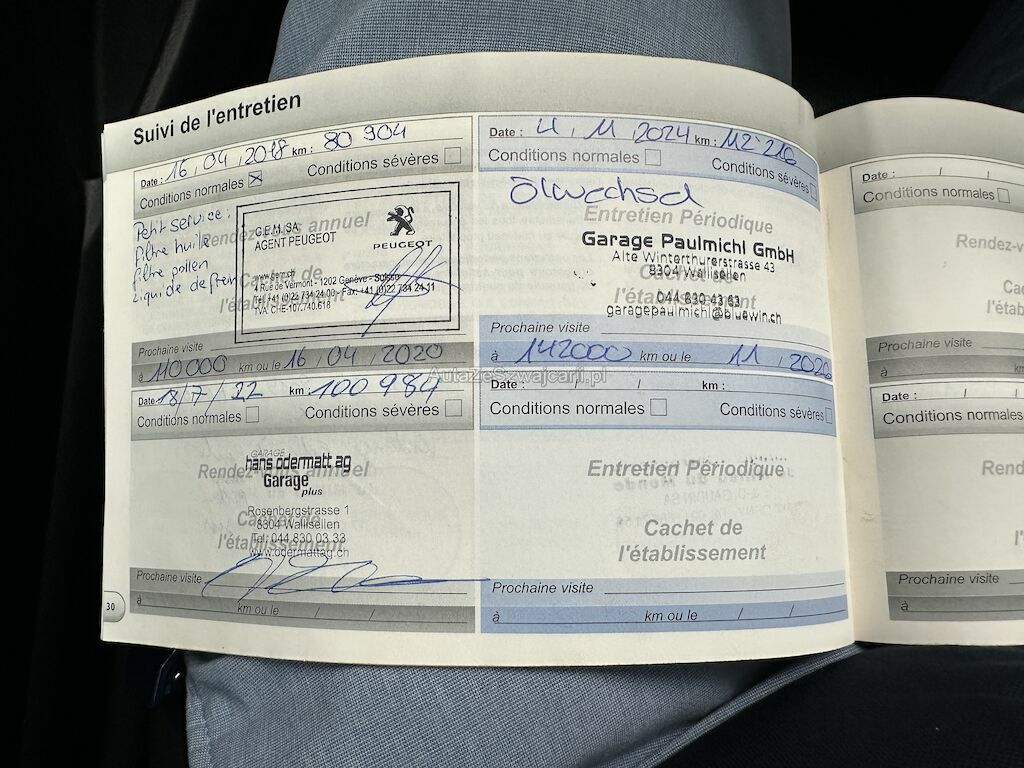 Suivi de l'entretien
Date : 16 / 04 / 2018 km : 80 904
Conditions normales ☒ Conditions sévères ☐
Petit service :
filtre huile
filtre pollen
Liquide de frein
Rendez-vous annuel
Cachet de
l'établissement
G.E.M. SA
AGENT PEUGEOT
PEUGEOT
www.gem.ch
4 Rue de Vermont - 1202 Genève - Suisse
Tél. +41 (0)22 734 24 00 - Fax: +41 (0)22 734 24 11
TVA CHE-107.740.618
Prochaine visite
à 110000 km ou le 16 / 04 / 2020
Date 18/7/22 km : 100 984
Conditions normales ☐ Conditions sévères ☐
Rendez-vous annuel
Cachet de
l'établissement
GARAGE
hans odermatt ag
Garage plus
Rosenbergstrasse 1
8304 Wallisellen
Tel. 044 830 03 33
www.odermattag.ch
Prochaine visite
à km ou le / /
30
Date : 4 / 11 / 2024 km : 112 216
Conditions normales ☐ Conditions sévères ☐
Ölwechsel
Entretien Périodique
Cachet de
l'établissement
Garage Paulmichl GmbH
Alte Winterthurerstrasse 43
8304 Wallisellen
044 830 43 63
garagepaulmichl@bluewin.ch
Prochaine visite
à 142000 km ou le 11 / 2026
AutazeSzwajcarii.pl
Date : / / km :
Conditions normales ☐ Conditions sévères ☐
Entretien Périodique
Cachet de
l'établissement
Prochaine visite
à km ou le / /
Date : / /
Conditions normales ☐
Rendez-v
Ca
l'éta
Prochaine visite
à
Date : / /
Conditions normales
Rend
l'é
Prochaine visite
à